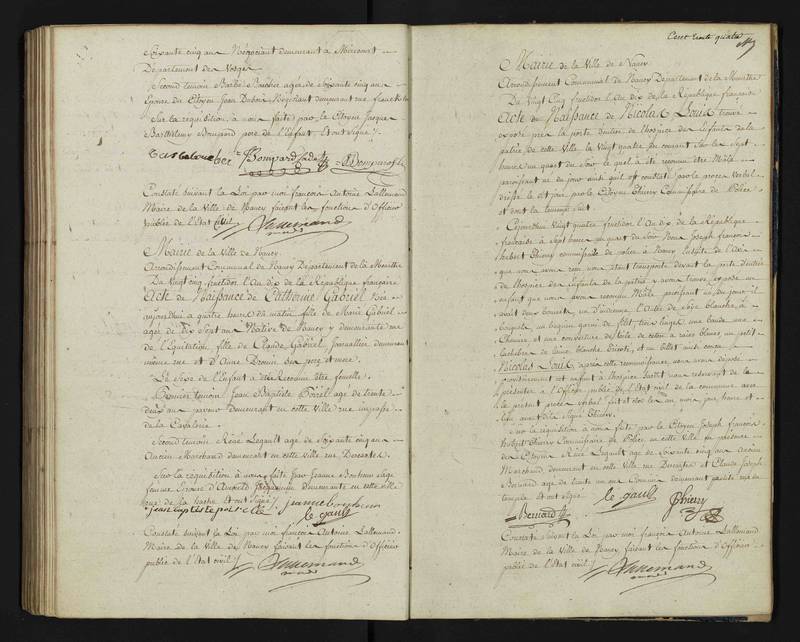 Soixante cinq ans Négociant demeurant à Mirecourt
Département des Vosges
Second temoin Barbe Barbier agée de Soixante cinq ans
Epouse du Citoyen Jean Dubois Négotiant demeurant rue
Sur la requisition à nous faite par le Citoyen Jacque
Barthelemy Bompard pere de l'Enfant Et ont signé
Bompard
Constaté Suivant la Loi par moi françois Antoine Lallemand
Maire de la Ville de Nancy faisant les fonctions d'Officier
public de l'Etat Civil
Lallemand
Mairie de la Ville de Nancy
Arrondissement Communal de Nancy Département de la Meurthe
Du Vingt Cinq fructidor l'An dix de la République françoise
Acte de Naissance de Catherine Gabriel Née
aujourd'hui à quatre heures du matin fille de Marie Gabriel
agée de dix Sept ans Native de Nancy y demeurante rue
de l'Equitation fille de Claude Gabriel Journallier demeurant
même rue et d'Anne Drouin ses pere et mere.
Le Sexe de l'Enfant a été Reconnu être femelle
Premier temoin Jean Baptiste Poirel agé de trente
deux ans demeurant en cette Ville rue impasse
de la Cavalerie
Second temoin Réné Legault agé de Soixante cinq ans
Ancien Marchand demeurant en cette ville rue Descartes
Sur la requisition à nous faite par Jeanne Sage
femme Epouse d'Arnould demeurante en cette ville
rue de la hache Et ont signé
jean baptiste poirel
le gault
Constaté suivant la Loi par moi françois Antoine Lallemand
Maire de la Ville de Nancy faisant les fonctions d'Officier
public de l'Etat civil
Lallemand
Cent trente quatre
Mairie de la Ville de Nancy
Arrondissement Communal de Nancy Département de la Meurthe
Du Vingt Cinq fructidor l'An dix de la République françoise
Acte de Naissance de Nicolas Louis trouvé
exposé près la porte d'entrée de l'hospice des Enfants de la
patrie de cette Ville le Vingt quatre du courant Sur les Sept
heures un quart du Soir le quel a été reconnu être Mâle
paroissant né du jour ainsi qu'il est constaté par le procès Verbal
dressé le dit jour par le Citoyen Thiery Commissaire de Police
et dont la teneur suit
Cejourd'hui Vingt quatre fructidor l'An dix de la République
françoise à Sept heures un quart du Soir Nous Joseph françois
hubert Thiery commissaire de police à Nancy
que nous avons reçu nous étant transporté devant la porte d'entrée
de l'hospice des Enfants de la patrie y avons trouvé exposé un
enfant que nous avons reconnu Mâle paroissant né du jour il
avoit deux bonnets, un d'indienne l'Autre de Soye blanche, à
un beguin garni de filet, trois langes une bande une
Chemise, et une couverture de toile de coton à raies bleues, un petit
de laine blanche tricoté, et un billet ainsi conçu
Nicolas Louis, après cette reconnoissance nous avons déposé
provisoirement cet enfant à l'hospice nous reservant de le
présenter à l'Officier public de l'Etat civil de la commune avec
le present procès verbal fait et clos les an mois, jour, heure et
lieu avant dits Signé Thiery.
Sur la requisition à nous faite par le Citoyen Joseph françois
hubert Thiery Commissaire de Police en cette Ville En presence
des Citoyens Réné Legault agé de Soixante cinq ans Ancien
Marchand demeurant en cette Ville rue Descartes et Claude Joseph
Bernard agé de trente un ans demeurant
temple Et ont signé
le gault
Thiery
Bernard
Constaté Suivant la Loi par moi françois Antoine Lallemand
Maire de la Ville de Nancy faisant les fonctions d'Officier
public de l'Etat civil
Lallemand